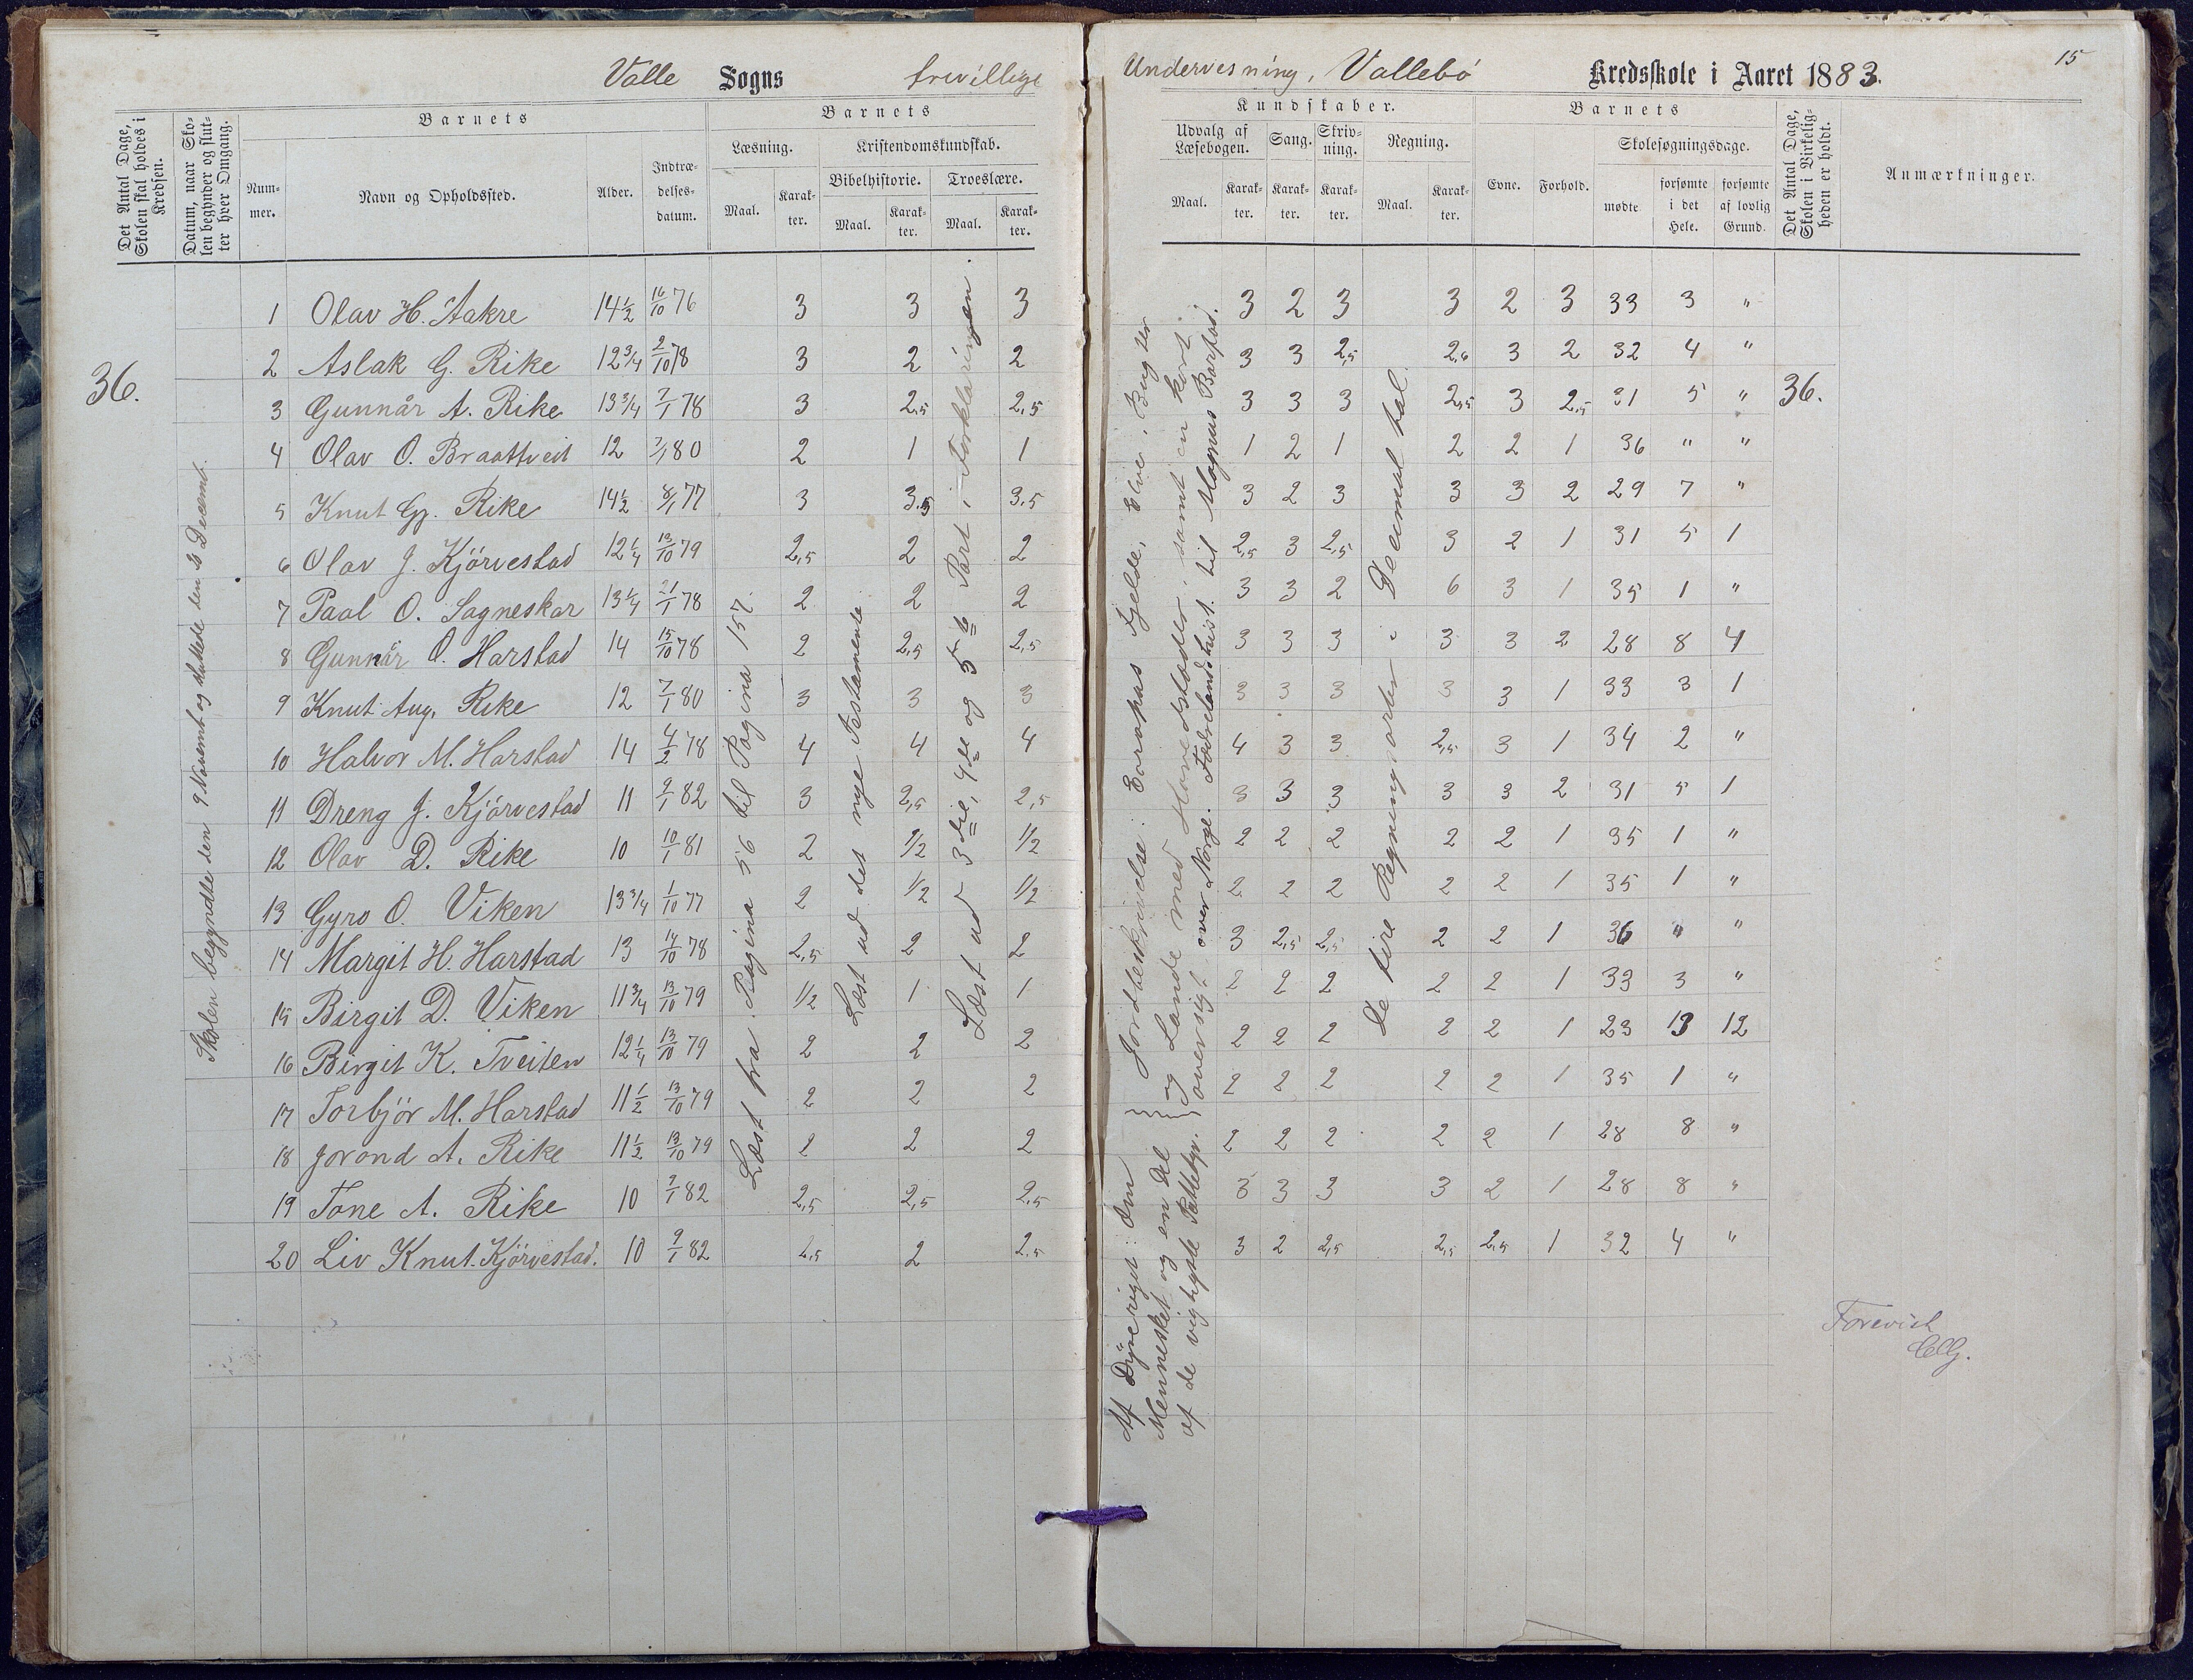 Valle Sogns frivillige Undervisning, Vallebö Kredsskole i Aaret 1883.
15
Det Antal Dage, Skolen skal holdes i Kredsen.
Datum, naar Skolen begynder og slutter hver Omgang.
Barnets
Nummer.
Navn og Opholdssted.
Alder.
Indtrædelsesdatum.
Barnets
Læsning.
Maal.
Karakter.
Kristendomskundskab.
Bibelhistorie.
Maal.
Karakter.
Troeslære.
Maal.
Karakter.
Kundskaber.
Udvalg af Læsebogen.
Maal.
Karakter.
Sang.
Karakter.
Skrivning.
Karakter.
Regning.
Maal.
Karakter.
Barnets
Evne.
Forhold.
Skolesøgningsdage.
mødte
forsømte i det Hele.
forsømte af lovlig Grund.
Det Antal Dage, Skolen i Virkeligheden er holdt.
Anmærkninger.
36.
Skolen begyndte den 9 Novemb og sluttede den Decemb.
Læst fra Pagina 56 til Pagina 157.
Læst ud det nye Testamente
Læst ud 3die, 4de og 5te Part i Forklaringen.
Af Dyreriget: Om Mennesket og en Del af de vigtigste Pattedyr.
Jordbeskrivelse: Europas Fjelde, Elve, Bugter og Lande med Hovedstæder, samt en kort oversigt over Norge. Fædrelandshist. til Magnus Barfod.
De fire Regningsarter i Decimal tal.
36.
1 Olav H. Aakre 14½ 16/10 76 3 3 3 3 2 3 3 2 3 33 3 "
2 Aslak G. Rike 12¾ 2/10 78 3 2 2 3 3 2,5 2,6 3 2 32 4 "
3 Gunnår A. Rike 13¾ 7/1 78 3 2,5 2,5 3 3 3 2,5 3 2,5 31 5 "
4 Olav O. Braattveit 12 7/1 80 2 1 1 1 2 1 2 2 1 36 " "
5 Knut Gj. Rike 14½ 8/1 77 3 3,5 3,5 3 2 3 3 3 2 29 7 "
6 Olav J. Kjörvestad 12¼ 13/10 79 2,5 2 2 2,5 3 2,5 3 2 1 31 5 1
7 Paal O. Sagneskar 13¼ 21/1 78 2 2 2 3 3 2 6 3 1 35 1 "
8 Gunnår O. Harstad 14 15/10 78 2 2,5 2,5 3 3 3 3 3 2 28 8 4
9 Knut Aug. Rike 12 7/1 80 3 3 3 3 3 3 3 3 1 33 3 1
10 Halvor M. Harstad 14 4/2 78 4 4 4 4 3 3 2,5 3 1 34 2 "
11 Dreng J. Kjörvestad 11 9/1 82 3 2,5 2,5 3 3 3 3 3 2 31 5 1
12 Olav D. Rike 10 10/1 81 2 1/2 1/2 2 2 2 2 2 1 35 1 "
13 Gyro O. Viken 13¾ 1/10 77 2 1/2 1/2 2 2 2 2 2 1 35 1 "
14 Margit H. Harstad 13 14/10 78 2,5 2 2 3 2,5 2,5 2 2 1 36 " "
15 Birgit D. Viken 11¾ 13/10 79 1/2 1 1 2 2 2 2 2 1 33 3 "
16 Birgit K. Tveiten 12¼ 13/10 79 2 2 2 2 2 2 2 2 1 23 13 12
17 Torbjör M. Harstad 11½ 13/10 79 2 2 2 2 2 2 2 2 1 35 1 "
18 Jorond A. Rike 11½ 13/10 79 2 2 2 2 2 2 2 2 1 28 8 "
19 Tone A. Rike 10 9/1 82 2,5 2,5 2,5 3 3 3 3 2 1 28 8 "
20 Liv Knut. Kjörvestad. 10 9/1 82 2,5 2 2,5 3 2 2,5 2,5 2,5 1 32 4 "
Forevist